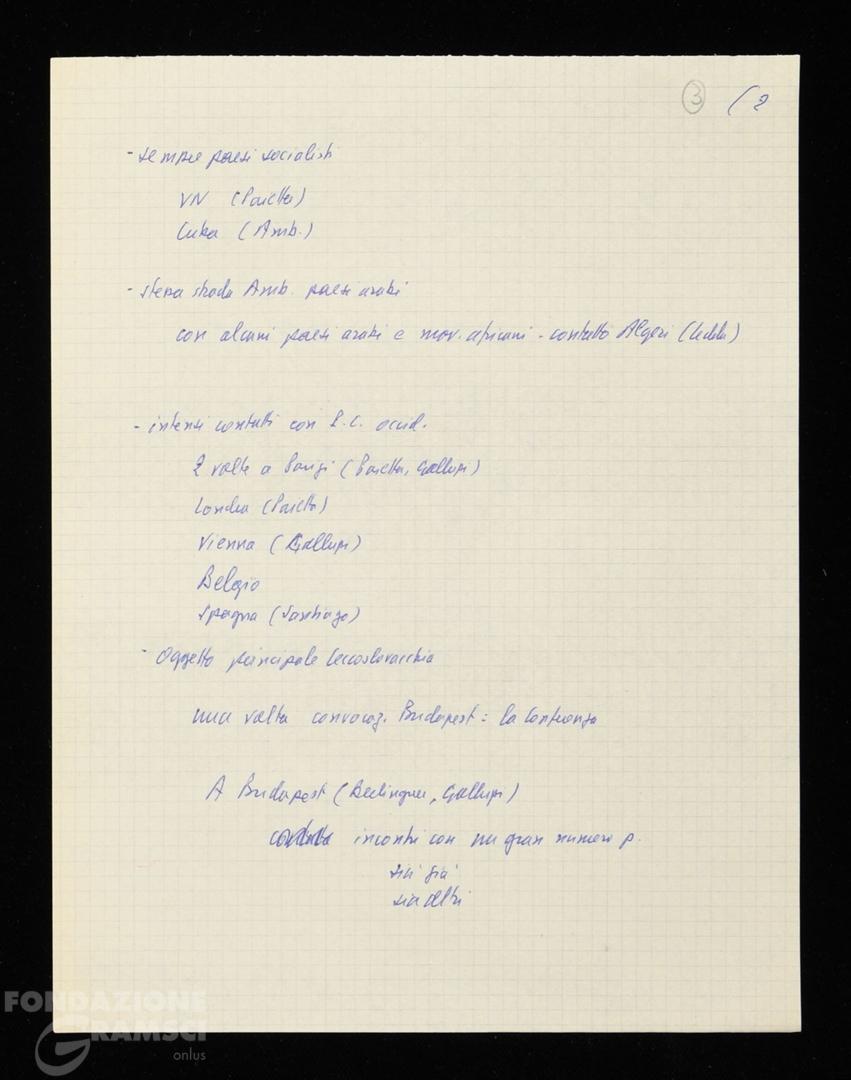 3 (2
- sempre paesi socialisti
VN (Pajetta)
Cuba (Amb.)
- stessa strada Amb. paesi arabi
con alcuni paesi arabi e mov. africani - contatto Algeri (Ledda)
- intensi contatti con P.C. occid.
2 volte a Parigi (Pajetta, Galluzzi)
Londra (Pajetta)
Vienna (Galluzzi)
Belgio
Spagna (Santiago)
- Oggetto principale Cecoslovacchia
una volta convocaz. Budapest: la Conferenza
A Budapest (Berlinguer, Galluzzi)
incontri con un gran numero p.
sia già
sia altri
FONDAZIONE
GRAMSCI
onlus